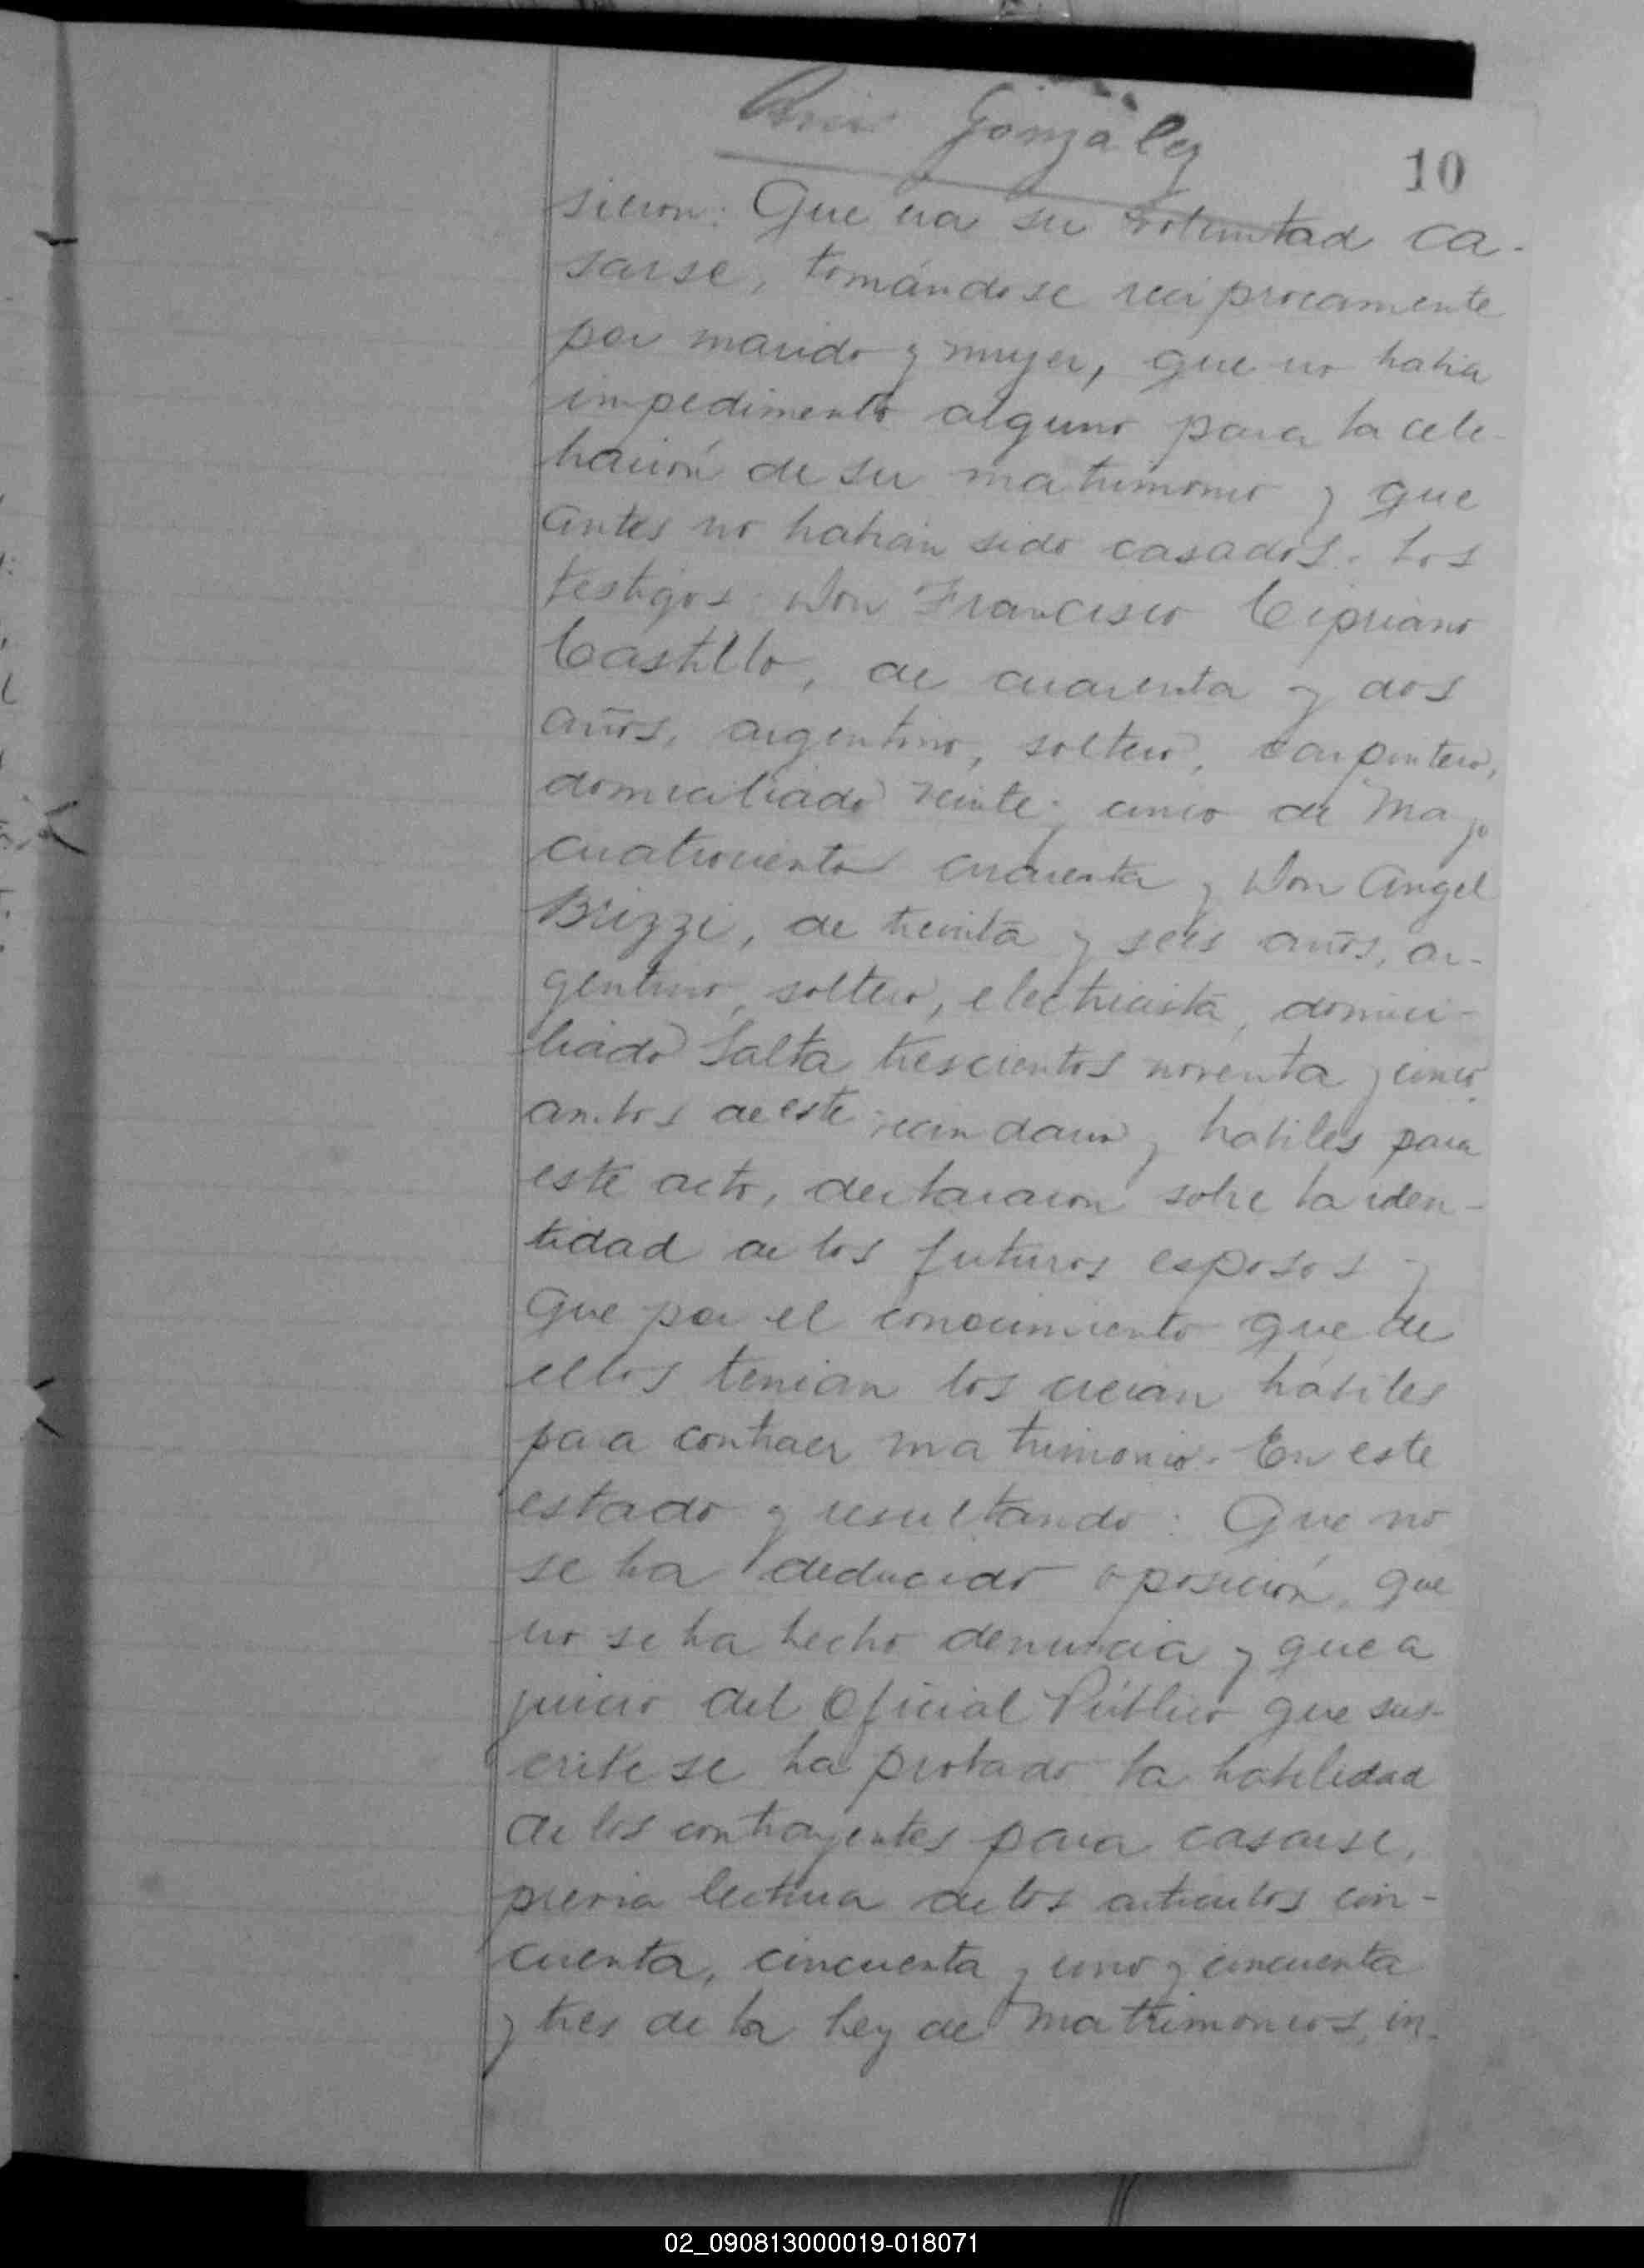 González
10
sicion: Que era su voluntad ca-
sarse, tomándose reciprocamente
por marido y mujer, que no habia
impedimento alguno para la cele-
bración de su matrimonio y que
antes no habian sido casados. Los
testigos Don Francisco Cipriano
Castillo, de cuarenta y dos
años, argentino, soltero, carpintero,
domiciliado veinte y cinco de Mayo
cuatrocientos cuarenta y Don Angel
Brizzi, de treinta y seis años, ar-
gentino, soltero, electricista, domici-
liado Salta trescientos noventa y cinco
ambos de este vecindario y habiles para
este acto, declararon sobre la iden-
tidad de los futuros esposos y
que por el conocimiento que de
ellos tenian los creian hábiles
para contraer matrimonio. En este
estado y resultando: Que no
se ha deducido oposición, que
no se ha hecho denuncia y que a
juicio del Oficial Público que sus-
cribe se ha probado la habilidad
de los contrayentes para casarse,
previa lectura de los articulos cin-
cuenta, cincuenta y uno y cincuenta
y tres de la Ley de Matrimonios, in-
02_090813000019-018071